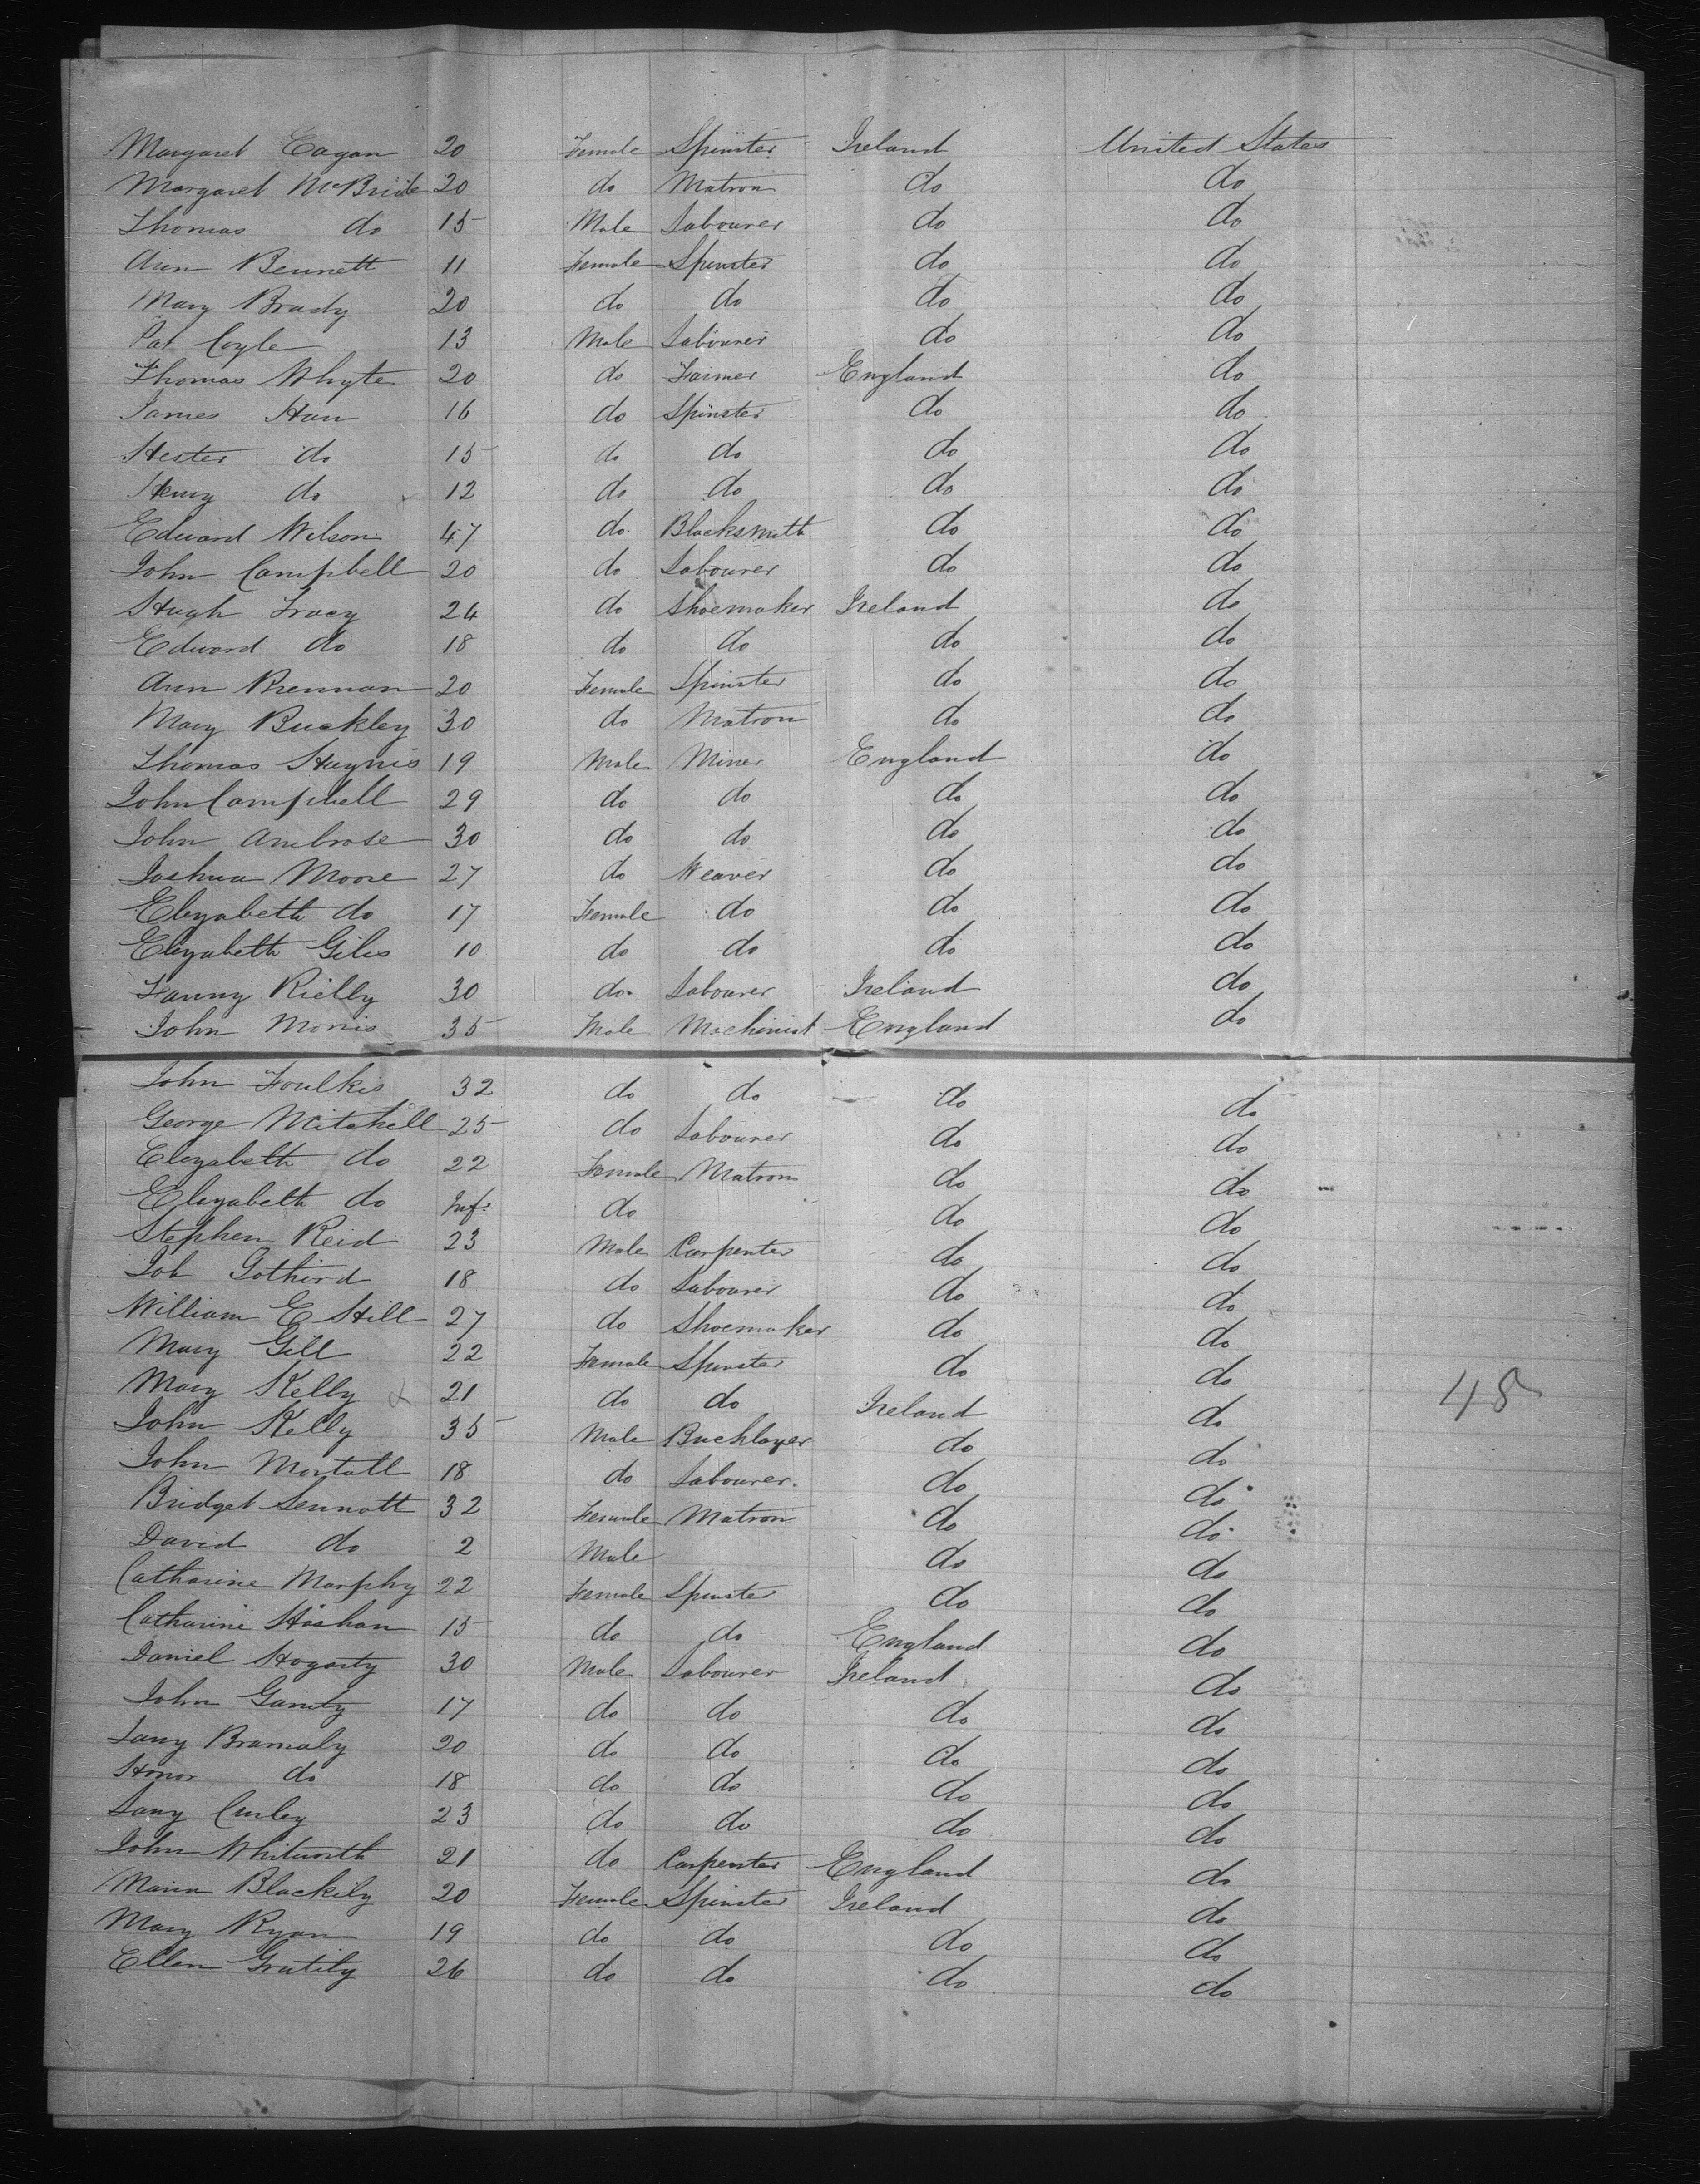 Margaret Eagan 20 Female Spinster Ireland United States
Margaret McBride 20 do Matron do do
Thomas do 15 Male Labourer do do
Ann Bennett 11 Female Spinster do do
Mary Brady 20 do do do do
Pat Coyle 13 Male Labourer do do
Thomas Whyte 20 do Farmer England do
James Han 16 do Spinster do do
Hester do 15 do do do do
Henry do 12 do do do do
Edward Wilson 47 do Blacksmith do do
John Campbell 20 do Labourer do do
Hugh Tracy 24 do Shoemaker Ireland do
Edward do 18 do do do do
Ann Brennan 20 Female Spinster do do
Mary Buckley 30 do Matron do do
Thomas Haynis 19 Male Miner England do
John Campbell 29 do do do do
John Ambrose 30 do do do do
Joshua Moore 27 do Weaver do do
Elizabeth do 17 Female do do do
Elizabeth Giles 10 do do do do
Fanny Rielly 30 do Labourer Ireland do
John Morris 35 Male Machinist England do
John Foulkes 32 do do do do
George Mitchell 25 do Labourer do do
Elizabeth do 22 Female Matron do do
Elizabeth do Inf. do do do
Stephen Reid 23 Male Carpenter do do
Job Gothird 18 do Labourer do do
William E Hill 27 do Shoemaker do do
Mary Gill 22 Female Spinster do do
Mary Kelly 21 do do Ireland do
John Kelly 35 Male Bricklayer do do
John Mortall 18 do Labourer. do do
Bridget Sennott 32 Female Matron do do
David do 2 Male do do
Catharine Murphy 22 Female Spinster do do
Catharine 15 do do England do
Daniel Hogarty 30 Male Labourer Ireland do
John Garrity 17 do do do do
20 do do do do
Honor do 18 do do do do
Curley 23 do do do do
John Whitworth 21 do Carpenter England do
Blackily 20 Female Spinster Ireland do
Mary Ryan 19 do do do do
Ellen 26 do do do do
48